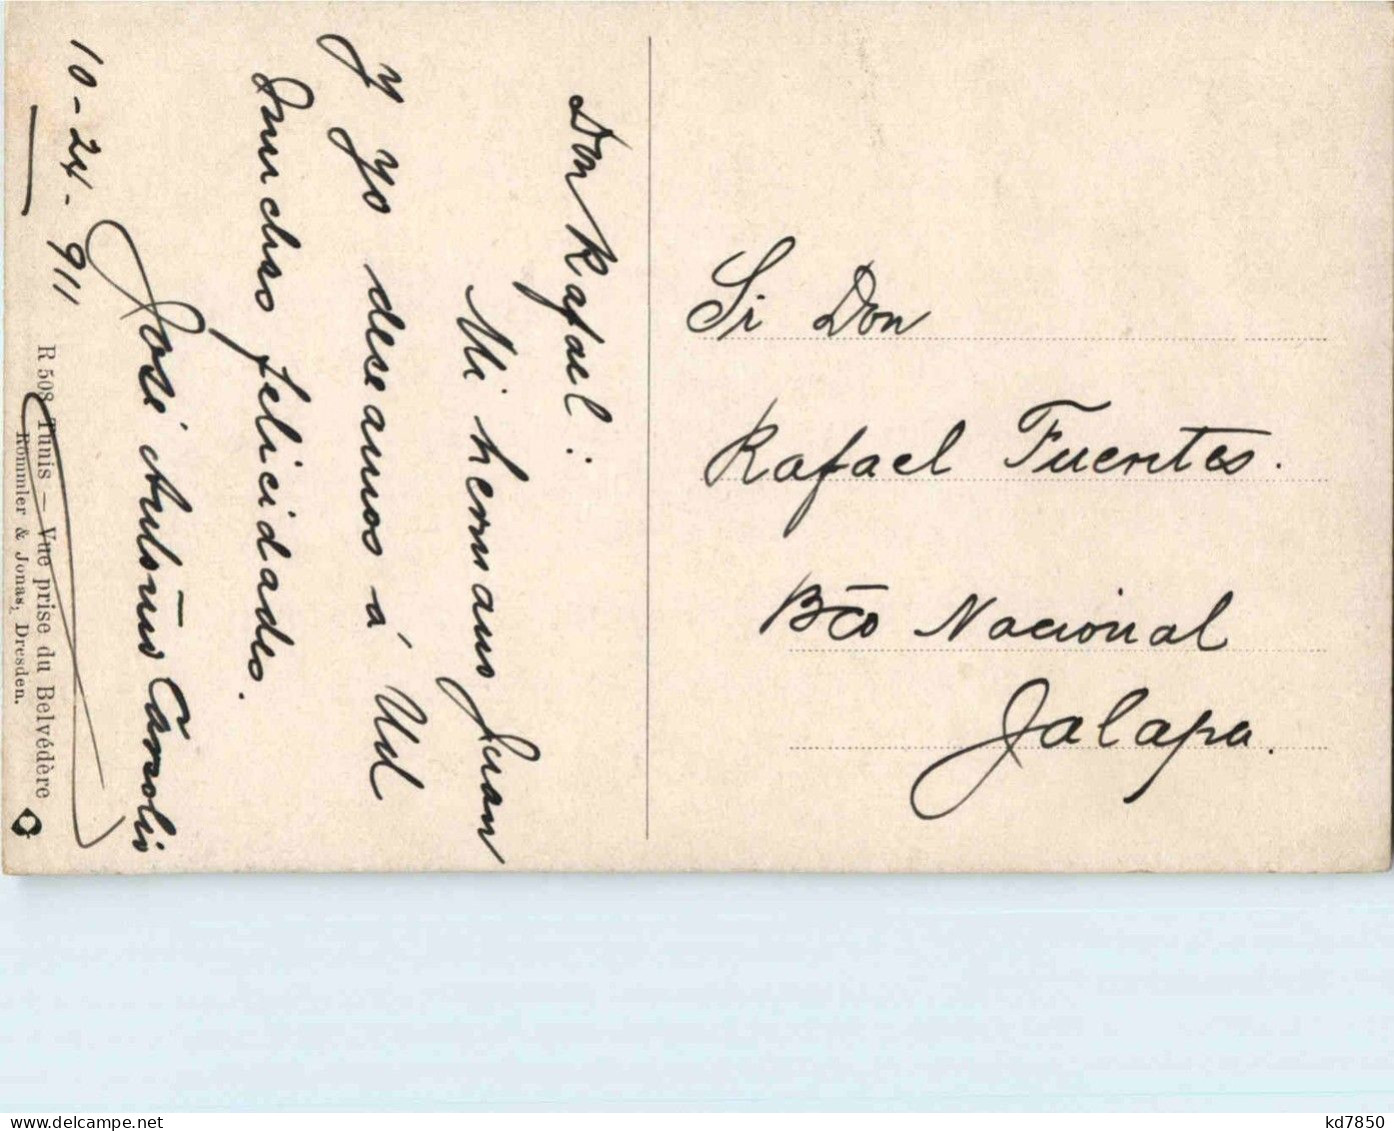 Don Rafael:
Mi hermano Juan
y yo deseamos á Ud
muchas felicidades.
José Antonio
10-24-911
R 508 Tunis — Vue prise du Belvédère
Rommler & Jonas, Dresden.
Sr Don
Rafael Fuentes.
Bco Nacional
Jalapa.
www.delcampe.net
kd7850